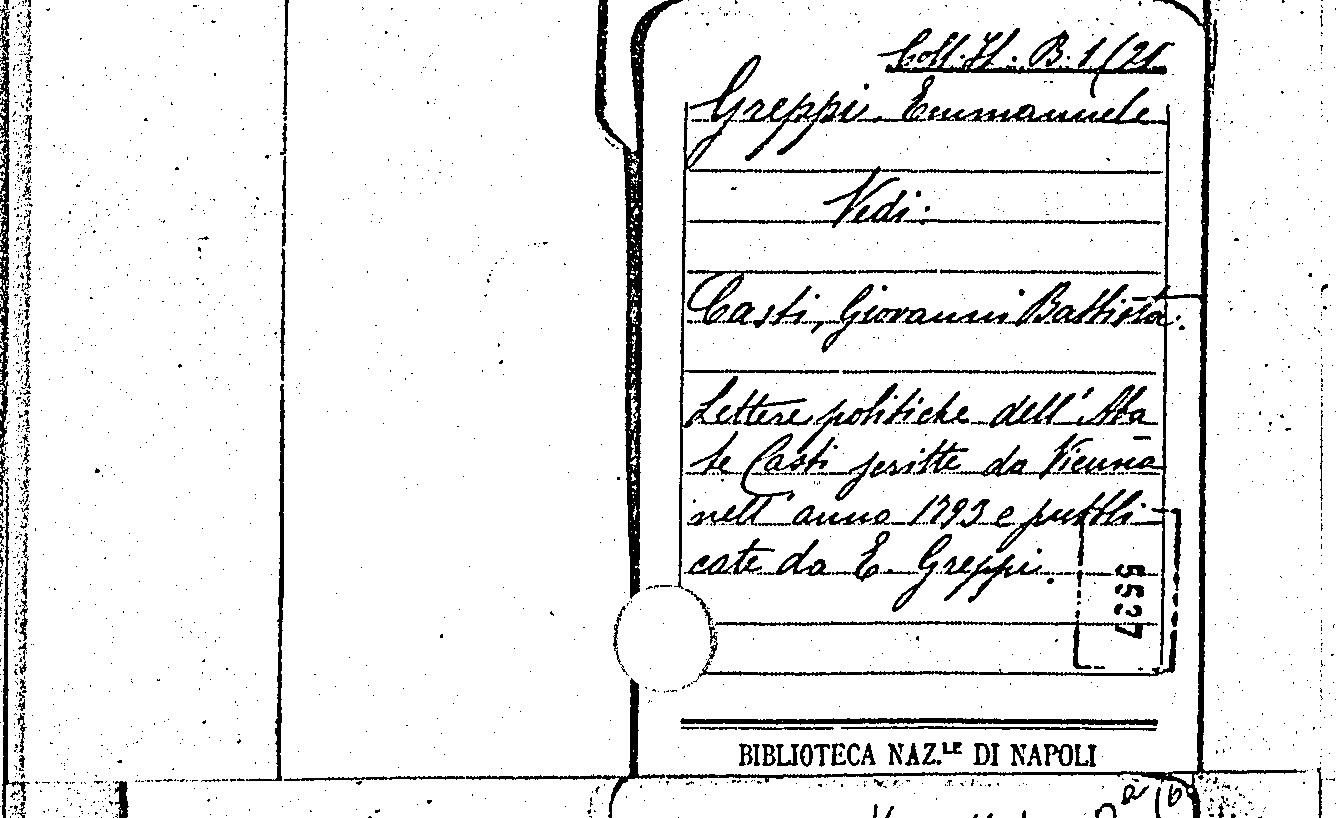 Coll. It. B. 1/21
Greppi, Emmanuele
Vedi:
Casti, Giovanni Battista.
Lettere politiche dell' Aba
te Casti scritte da Vienna
nell' anno 1793 e pubbli-
cate da E. Greppi.
5527
BIBLIOTECA NAZ.LE DI NAPOLI